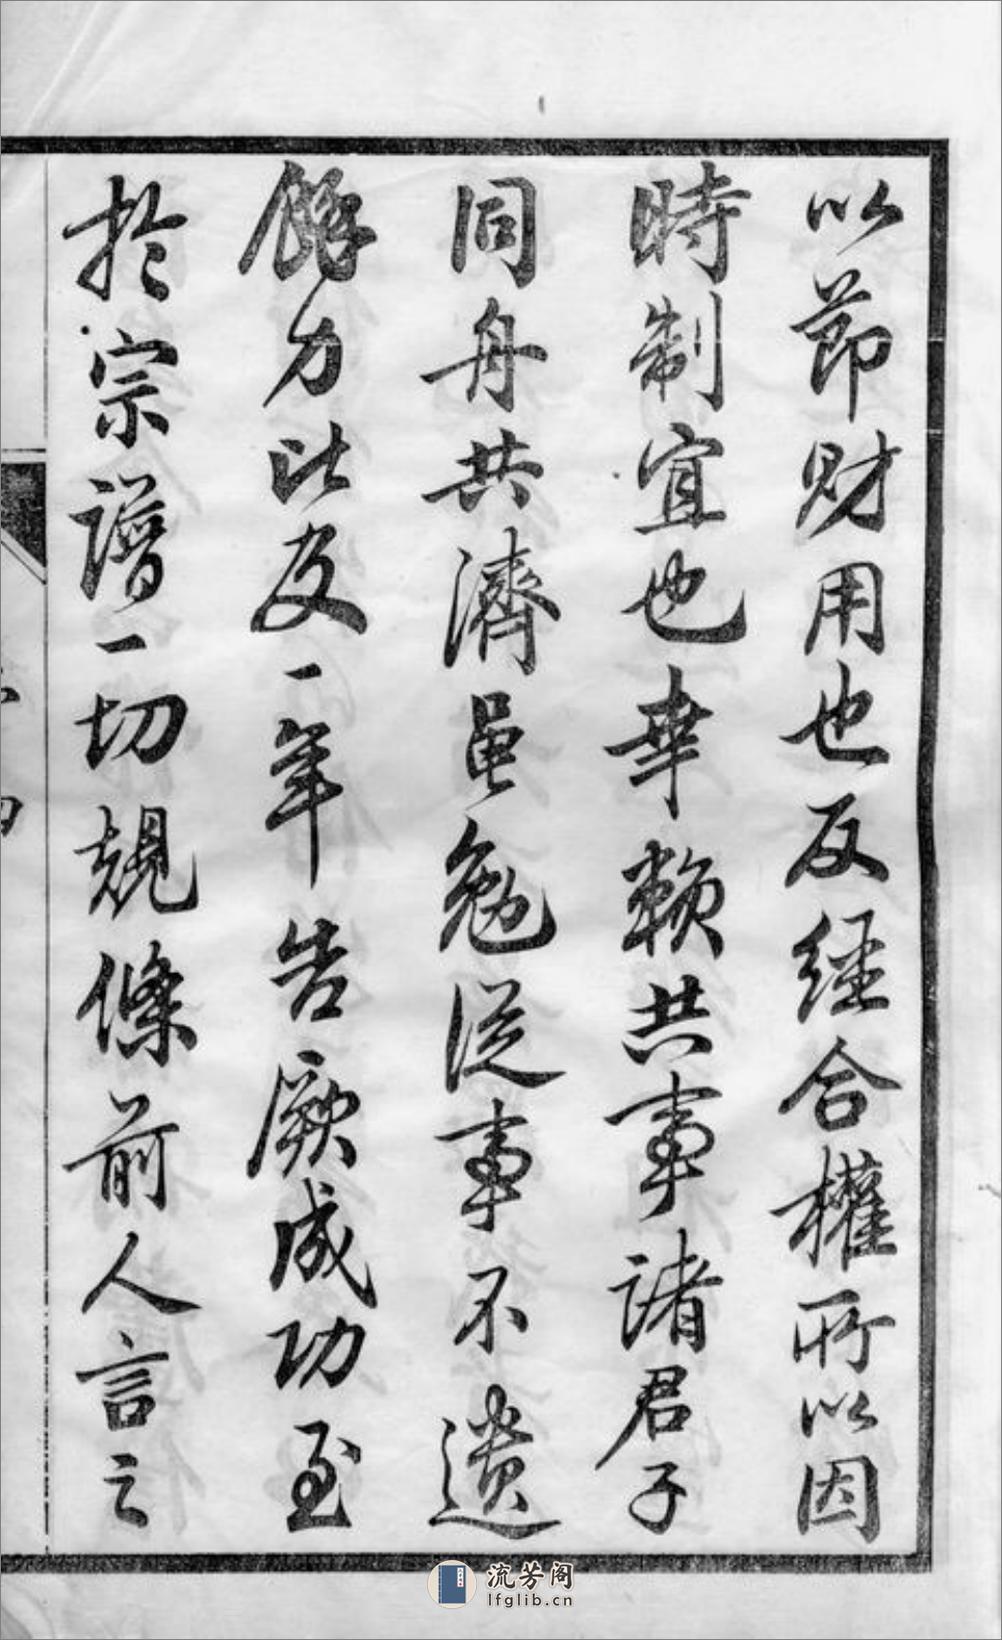 以節財用也反經合權所以因
時制宜也幸賴共事諸君子
同舟共濟黽勉從事不遺
餘力比及一年告厥成功至
於宗譜一切規條前人言之
流芳阁
lfglib.cn